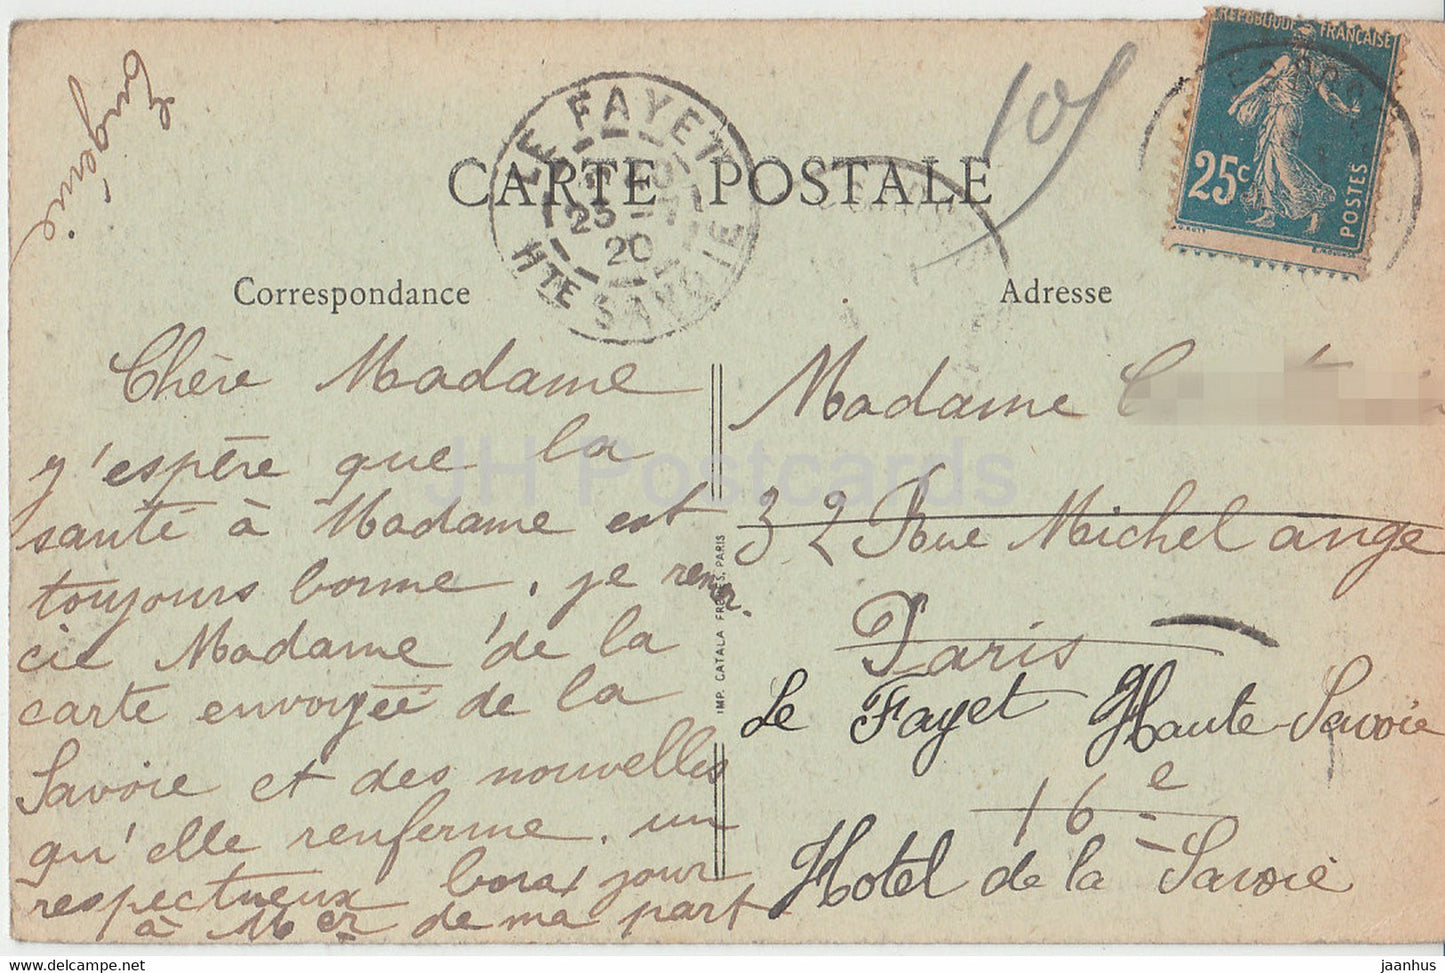 Eugénie
CARTE POSTALE
LE FAYET
25
20
HTE SAVOIE
105
RÉPUBLIQUE FRANÇAISE
25c
POSTES
Correspondance
Adresse
Chère Madame
y'espère que la
santé à Madame est
toujours bonne. je remer
cie Madame de la
carte envoyée de la
Savoie et des nouvelles
qu'elle renferme. un
respectueux bonjour
à Mer de ma part
IMP. CATALA FRERES, PARIS
Madame
32 Rue Michel ange
Paris
Le Fayet Haute-Savoie
16e
Hotel de la Savoie
JH Postcards
www.delcampe.net
jaanhus